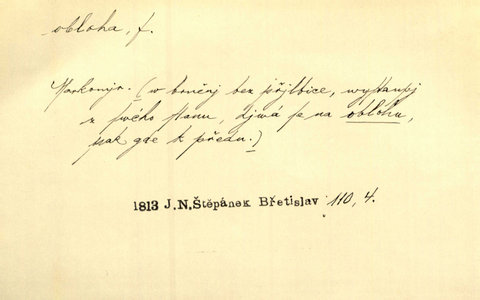 obloha, f.
Markomjr. (w brněnj bez přjlbice, wystaupj
z swého stanu, djwá se na oblohu,
pak gde k předu.)
1813 J.N.Štěpánek Břetislav 110, 4.